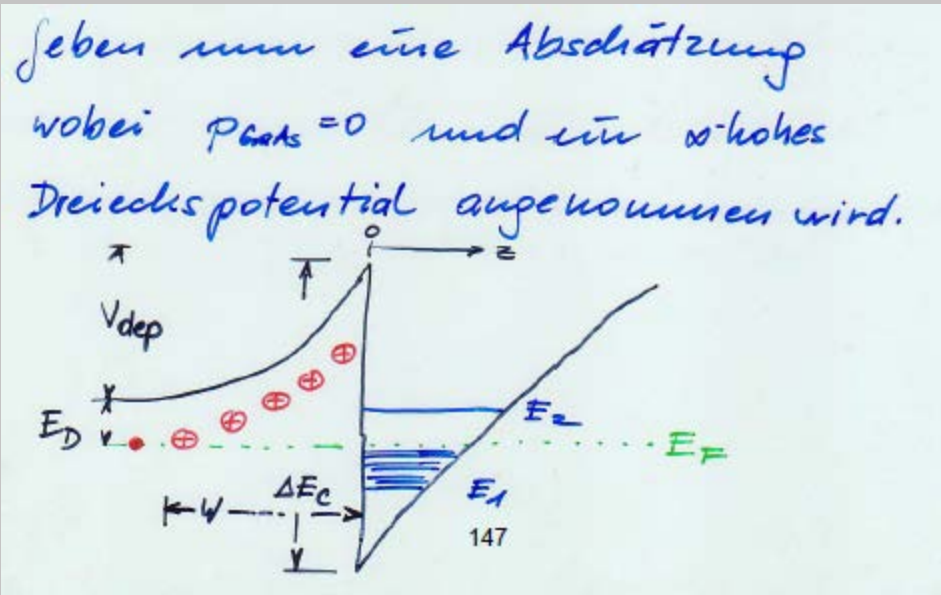 geben nun eine Abschätzung
wobei ρGaAs =0 und ein ∞-hohes
Dreieckspotential angenommen wird.
0
z
Vdep
E2
ED
EF
ΔEC
E1
W
147